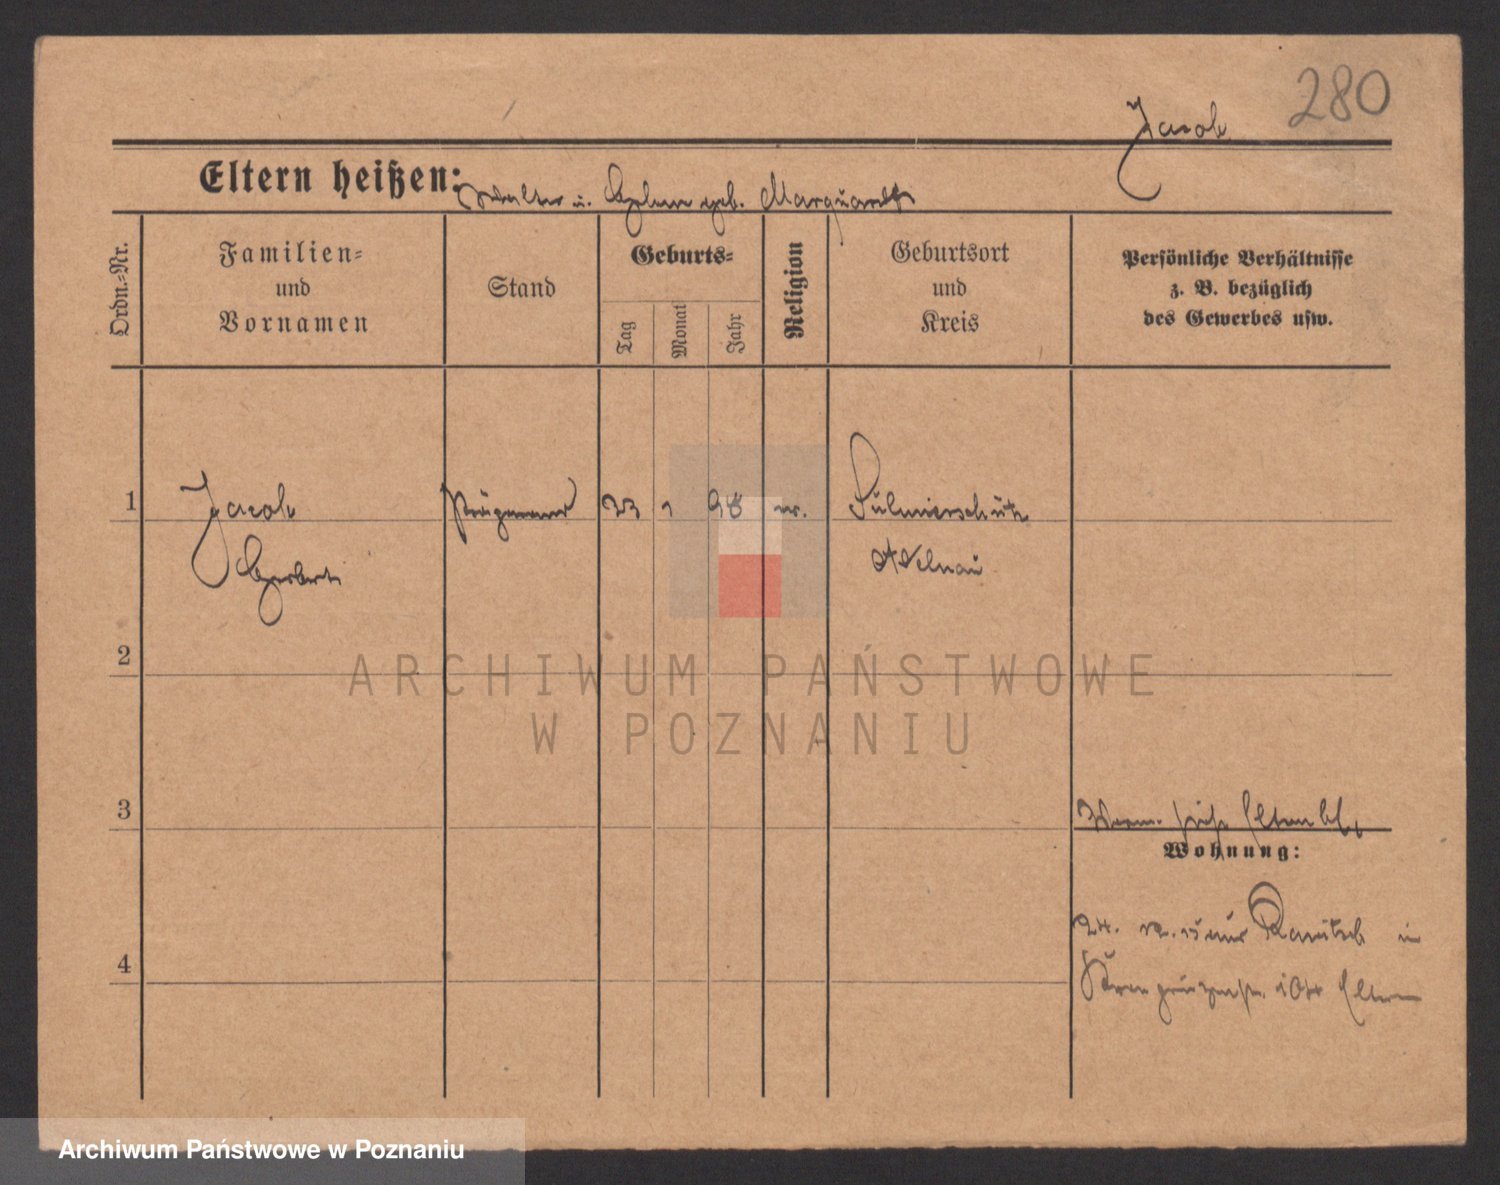 280
Jacob
Eltern heißen: Walter u. Helene geb. Marquardt
Ordn.-Nr.
Familien-
und
Vornamen
Stand
Geburts-
Tag
Monat
Jahr
Religion
Geburtsort
und
Kreis
Persönliche Verhältnisse
z. B. bezüglich
des Gewerbes usw.
1
Jacob
Herbert
23
1
98
Sulmierschütz
Adelnau
2
3
Eltern
Wohnung:
4
24. Rawitsch in
104 Eltern
ARCHIWUM PAŃSTWOWE
W POZNANIU
Archiwum Państwowe w Poznaniu